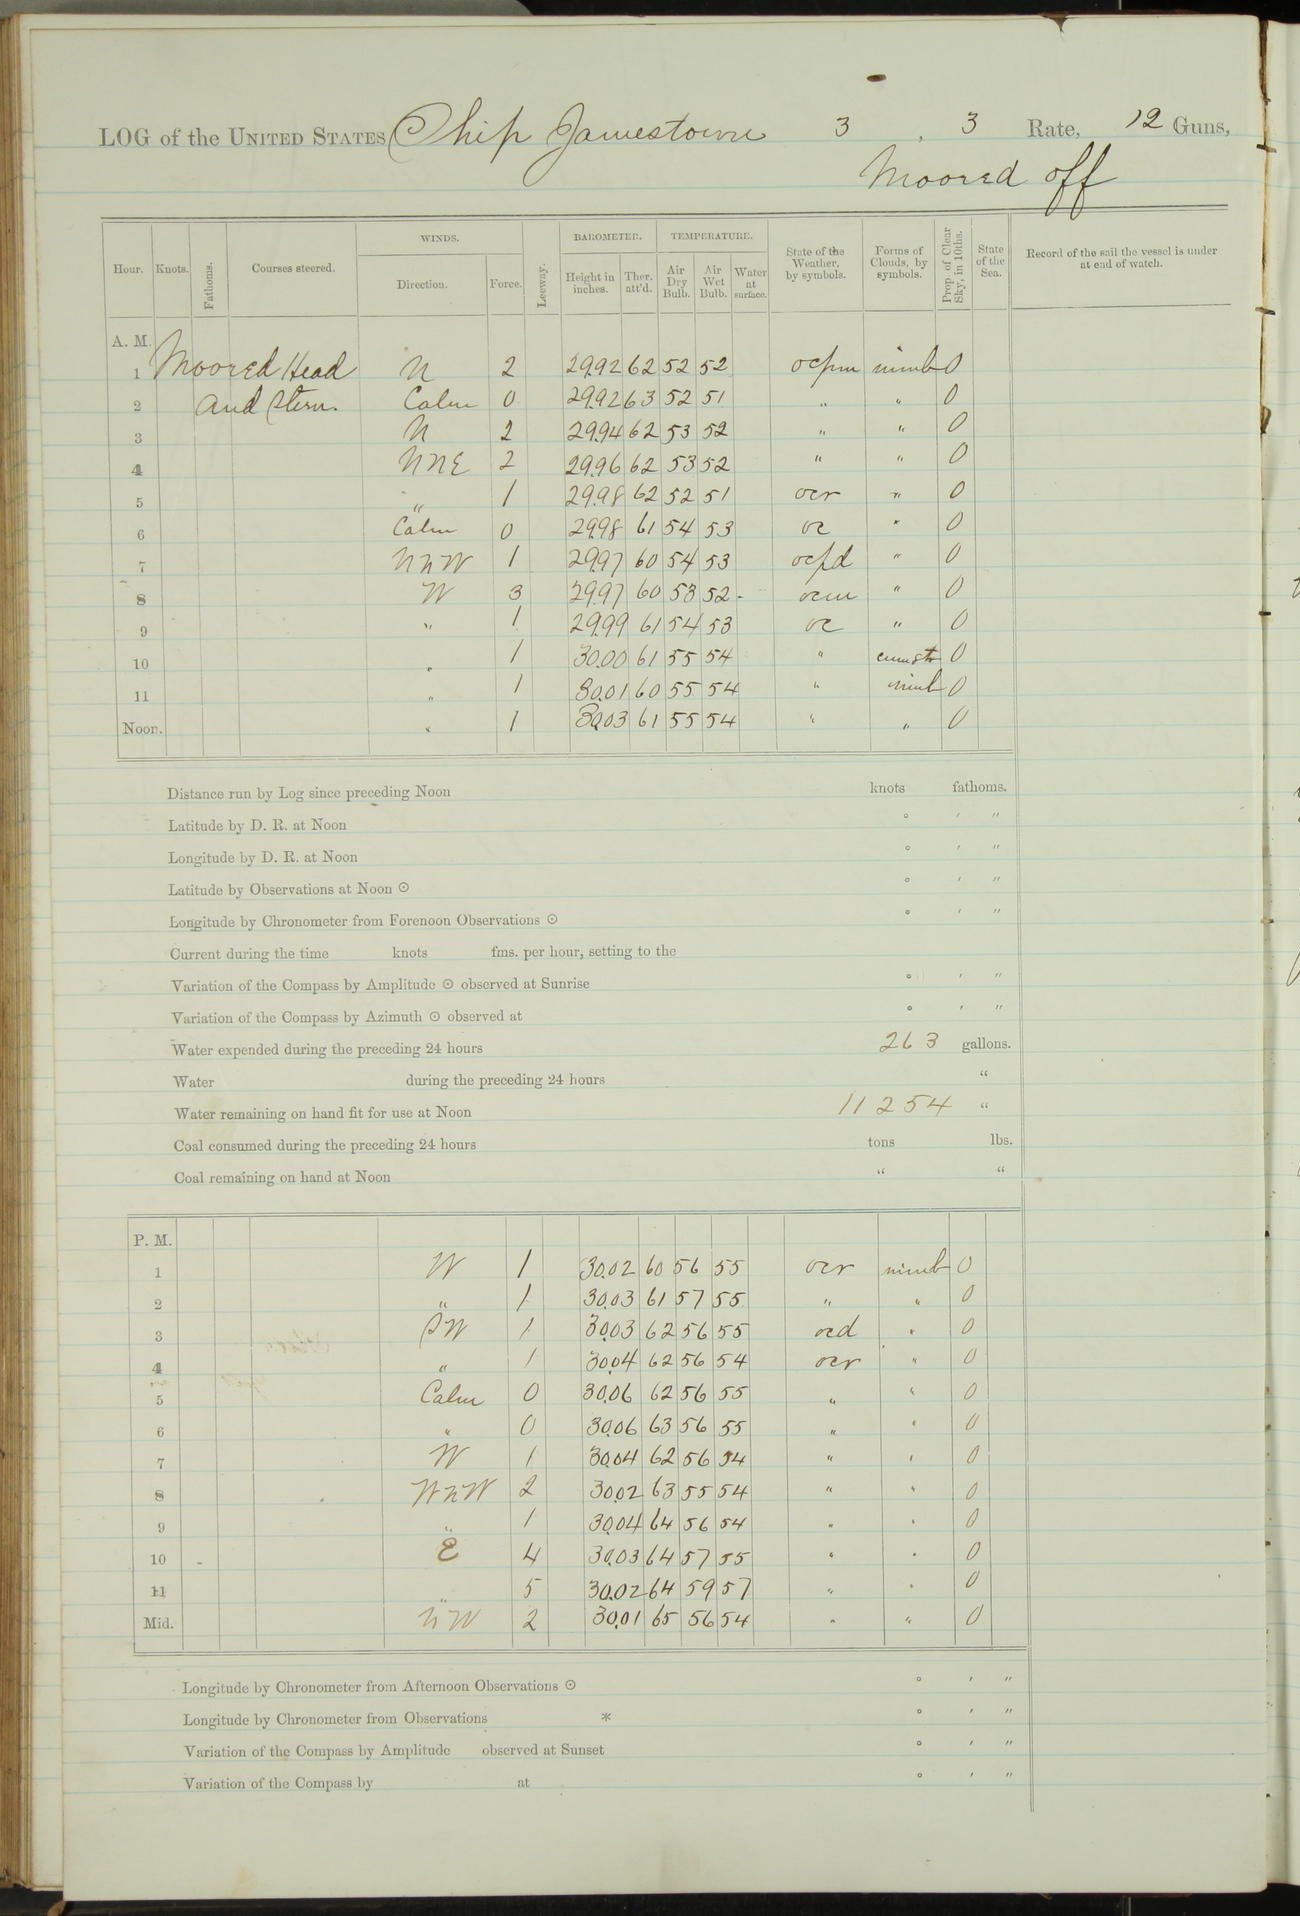 LOG of the UNITED STATES Ship Jamestown 3, 3 Rate, 12 Guns,
Moored off
Hour. Knots. Fathoms. Courses steered. WINDS. Direction. Force. Leeway. BAROMETER. Height in inches. Ther. att'd. TEMPERATURE. Air Dry Bulb. Air Wet Bulb. Water at surface. State of the Weather, by symbols. Forms of Clouds, by symbols. Prop. of Clear Sky, in 10ths. State of the Sea. Record of the sail the vessel is under at end of watch.
A. M.
1 Moored Head N 2 29.92 62 52 52 ocpm nimb 0
2 and Stern. Calm 0 29.92 63 52 51 " " 0
3 N 2 29.94 62 53 52 " " 0
4 NNE 2 29.96 62 53 52 " " 0
5 " 1 29.98 62 52 51 ocr " 0
6 Calm 0 29.98 61 54 53 oc " 0
7 NNW 1 29.97 60 54 53 ocpd " 0
8 W 3 29.97 60 53 52 ocm " 0
9 " 1 29.99 61 54 53 oc " 0
10 " 1 30.00 61 55 54 " cumstr 0
11 " 1 30.01 60 55 54 " nimb 0
Noon. " 1 30.03 61 55 54 " " 0
Distance run by Log since preceding Noon knots fathoms.
Latitude by D. R. at Noon ° ′ ″
Longitude by D. R. at Noon ° ′ ″
Latitude by Observations at Noon ⊙ ° ′ ″
Longitude by Chronometer from Forenoon Observations ⊙ ° ′ ″
Current during the time knots fms. per hour, setting to the
Variation of the Compass by Amplitude ⊙ observed at Sunrise ° ′ ″
Variation of the Compass by Azimuth ⊙ observed at ° ′ ″
Water expended during the preceding 24 hours 263 gallons.
Water during the preceding 24 hours "
Water remaining on hand fit for use at Noon 11254 "
Coal consumed during the preceding 24 hours tons lbs.
Coal remaining on hand at Noon " "
P. M.
1 W 1 30.02 60 56 55 ocr nimb 0
2 " 1 30.03 61 57 55 " " 0
3 SW 1 30.03 62 56 55 ocd " 0
4 " 1 30.04 62 56 54 ocr " 0
5 Calm 0 30.06 62 56 55 " " 0
6 " 0 30.06 63 56 55 " " 0
7 W 1 30.04 62 56 54 " " 0
8 WNW 2 30.02 63 55 54 " " 0
9 " 1 30.04 64 56 54 " " 0
10 E 4 30.03 64 57 55 " " 0
11 " 5 30.02 64 59 57 " " 0
Mid. NW 2 30.01 65 56 54 " " 0
Longitude by Chronometer from Afternoon Observations ⊙ ° ′ ″
Longitude by Chronometer from Observations * ° ′ ″
Variation of the Compass by Amplitude observed at Sunset ° ′ ″
Variation of the Compass by at ° ′ ″